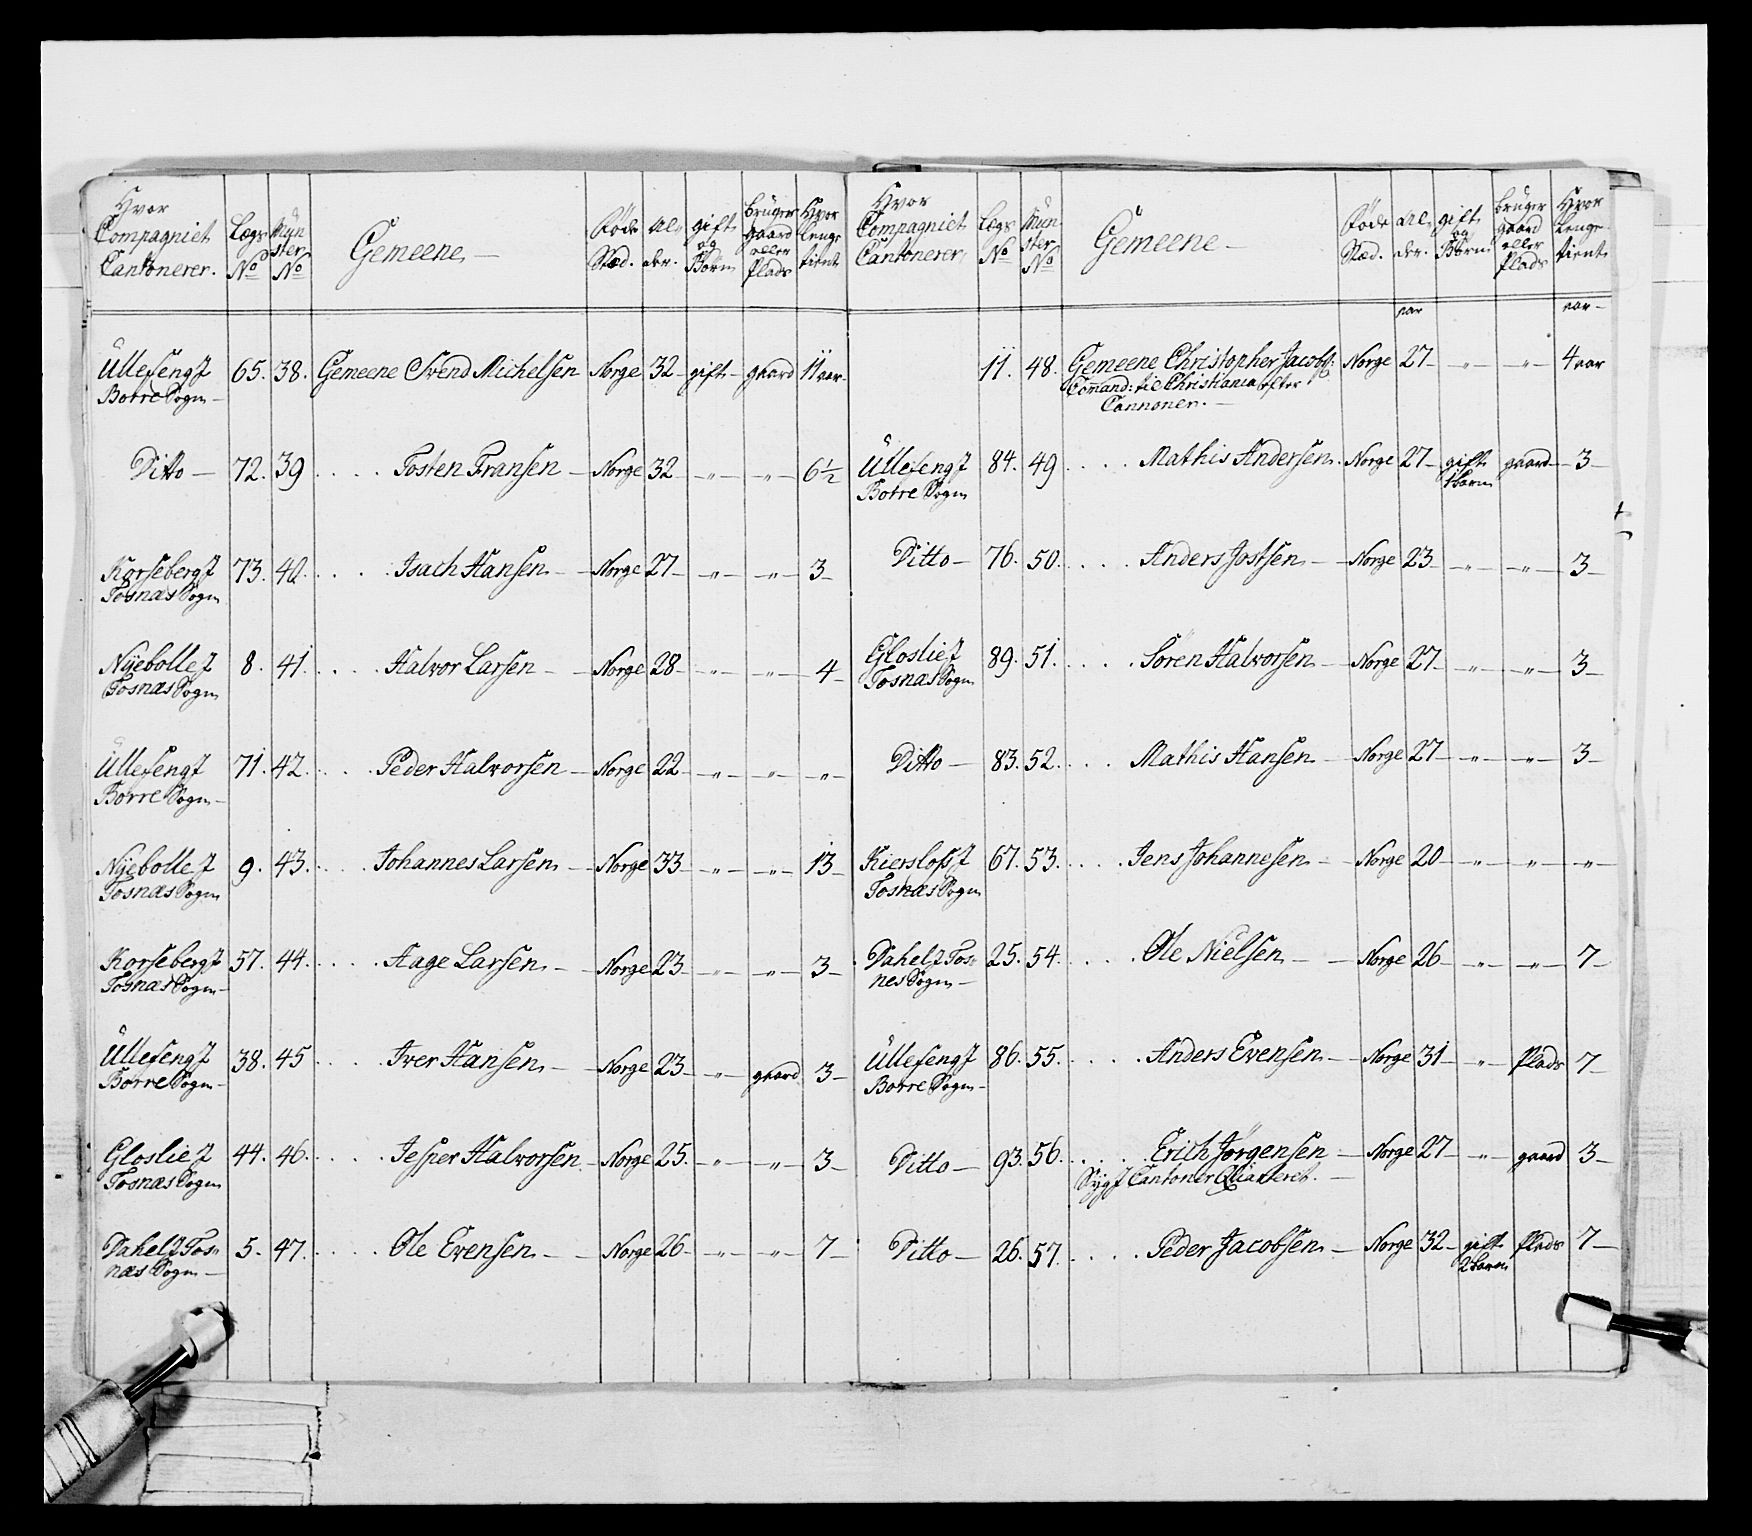 Hvor Compagniet Cantonerer. Lægs No Mynster No Gemeene — Føde Stæd. Alder. gift og Børn bruger gaard eller Plads Hvor lenge tient
Ullesengf 65. 38. Gemeene Svend Michelsen Norge 32 — gift — gaard 11 aar —
Botre Sogn —
Ditto — 72. 39 . . . . Tosten Fransen — Norge 32 — „ — „ — 6½
Korsebergf 73. 40. . . . . Isach Hansen — Norge 27 — „ — „ — 3 —
Tosnæs Sogn
Nyebollef 8. 41. . . . . Halvor Larsen — Norge 28 — „ — „ — 4 —
Tosnæs Sogn
Ullesengf 71. 42. . . . . Peder Halvorsen — Norge 22 — „ — „ — „
Borre Sogn —
Nyebollef 9. 43. . . . . Johannes Larsen — Norge 33 — „ — „ — 13 —
Tosnæs Sogn
Korsebergf 57. 44. . . . . Aage Larsen — Norge 23 — „ — „ — 3 —
Tosnæs Sogn —
Ullesengf 38. 45 . . . . Iver Hansen — Norge 23 — „ — gaard 3 —
Borre Sogn —
Gloslief 44. 46. . . . . Jesper Halvorsen — Norge 25. — „ — „ — 3 —
Tosnæs Sogn
Dahelf Tos= 5. 47. . . . . Ole Evensen — Norge 26 — „ — „ — 7 —
næs Sogn —
Hvor Compagniet Cantonerer. Lægs No Mynster No Gemeene — Føde Stæd. Alder. gift og Børn bruger gaard eller Plads Hvor lenge tient
aar aar —
11. 48. Gemeene Christopher Jacobs: Norge 27 — „ — „ — 4 aar
Comand: til Christiania efter
Cannoner. —
Ullesengf 84. 49 . . . . Mathis Andersen. Norge 27 — gift gaard — 3 —
Botre Sogn 1 barn
Ditto — 76. 50. . . . . Anders Jostsen — Norge 23 — „ — „ — 3 —
Gloslief 89. 51. . . . . Søren Halvorsen — Norge 27 — „ — „ — 3 —
Tosnæs Sogn
Ditto — 83. 52. . . . . Mathis Hansen — Norge 27 — „ — „ — 3 —
Kierslofsf 67. 53. . . . . Jens Johannesen — Norge 20 — „ — „ — „
Tosnæs Sogn
Dahelf Tos= 25. 54. . . . . Ole Nielsen — Norge 26 — „ — „ — 7 —
nes Sogn —
Ullesengf 86. 55. . . . . Anders Evensen — Norge 31 — „ — Plads 7 —
Borre Sogn —
Ditto — 93. 56. . . . . Erich Jørgensen — Norge 27 — „ — gaard 3 —
Syg J Cantoner Qvarteret. —
Ditto — 26. 57. . . . . Peder Jacobsen — Norge 32 — gift Plads 7 —
2 barn